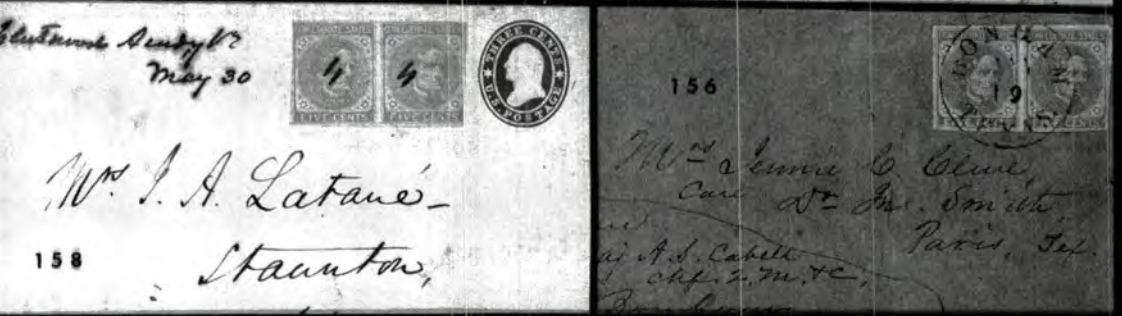 May 30
4 4
FIVE CENTS FIVE CENTS
THREE CENTS
U.S. POSTAGE
Mrs. J. A. Latané
Staunton,
158
156
BONHAM
19
Mrs Jennie C. Cline,
Care Dr. Jno. Smith
Paris, Tex.
A. S. Cabell
chf. Q. M. &C.